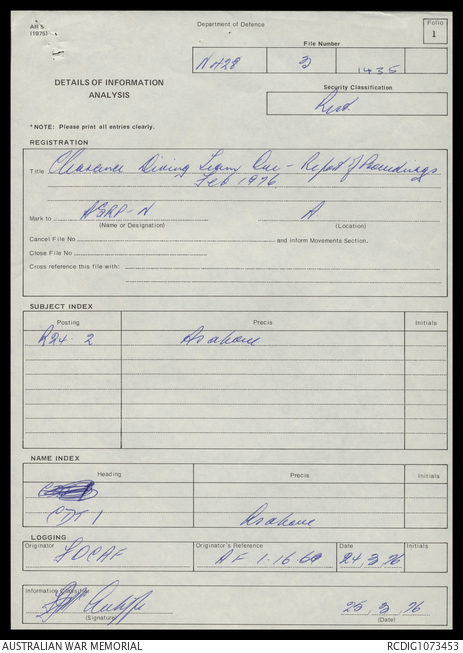 AR 5
(1975)
Department of Defence
Folio
1
File Number
N428 3 1435
DETAILS OF INFORMATION
ANALYSIS
Security Classification
Rest.
*NOTE: Please print all entries clearly.
REGISTRATION
Title Clearance Diving Team One - Report of Proceedings
Feb 1976
Mark to A
(Name or Designation) (Location)
Cancel File No and inform Movements Section.
Close File No
Cross reference this file with:
SUBJECT INDEX
Posting Precis Initials
R24. 2 As above
NAME INDEX
Heading Precis Initials
CDT 1 As above
LOGGING
Originator Originator's Reference Date Initials
FOCAF AF 1-16-69 24 3 76
Information Classifier
(Signature)
25 3 76
(Date)
AUSTRALIAN WAR MEMORIAL RCDIG1073453